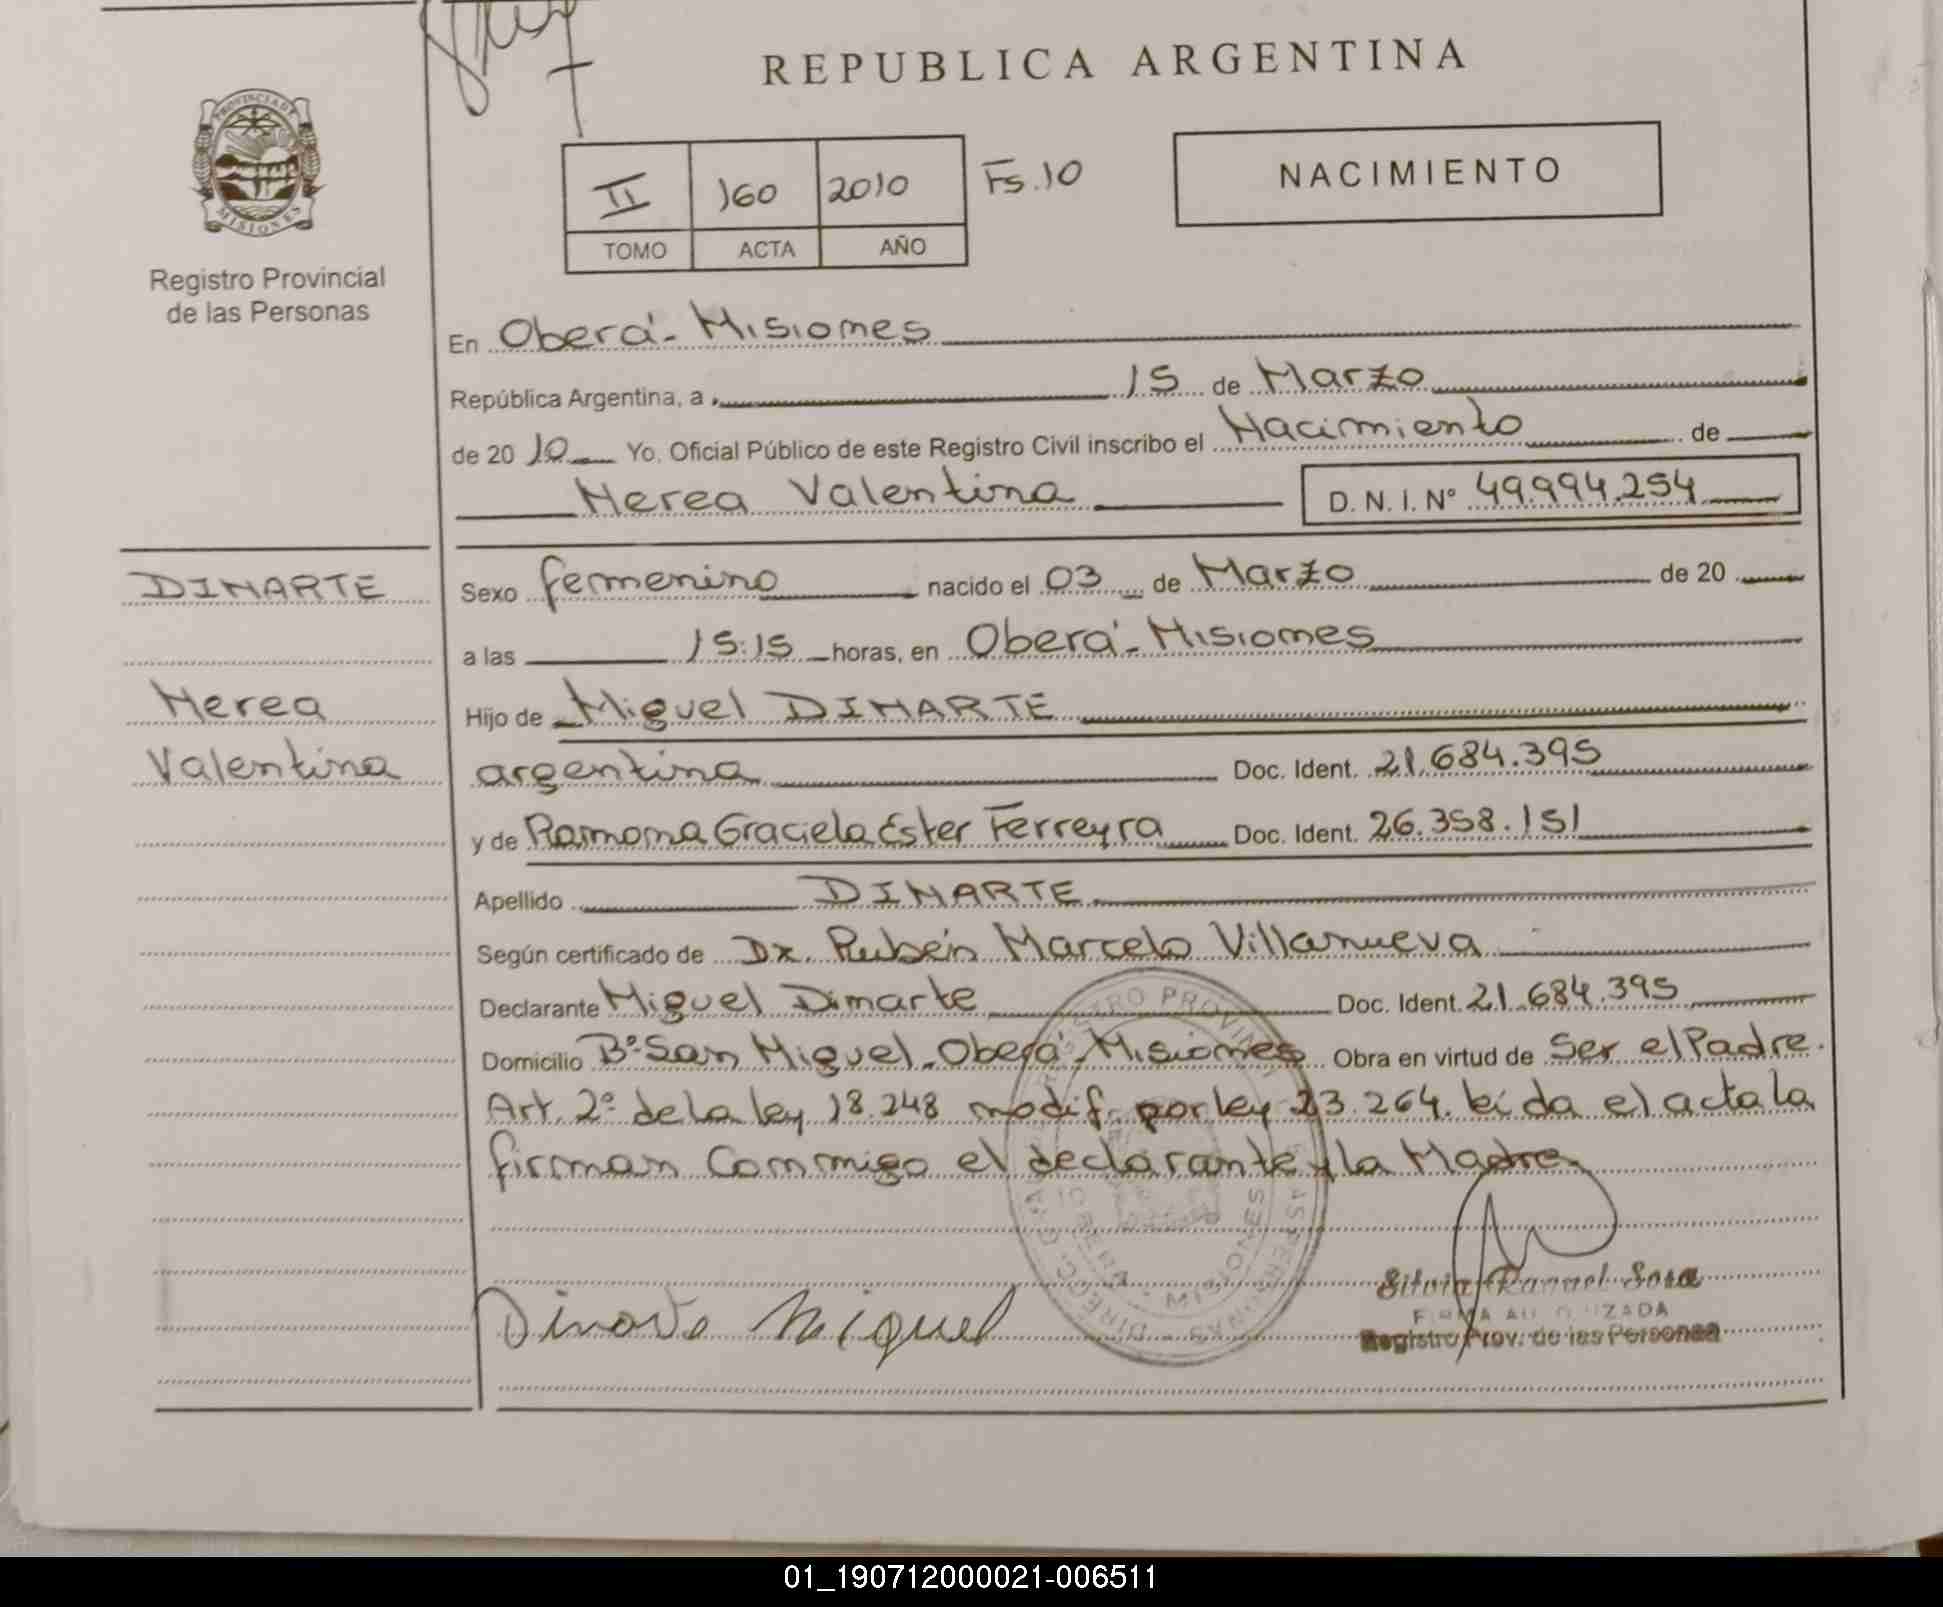 REPUBLICA ARGENTINA
PROVINCIA DE
MISIONES
Registro Provincial
de las Personas
II 160 2010 Fs. 10
TOMO ACTA AÑO
NACIMIENTO
En Oberá - Misiones
República Argentina, a 15 de Marzo
de 20 10 Yo, Oficial Público de este Registro Civil inscribo el Nacimiento de
Nerea Valentina D. N. I. N° 49.994.254
DINARTE
Nerea
Valentina
Sexo femenino nacido el 03 de Marzo de 20
a las 15:15 horas, en Oberá - Misiones
Hijo de Miguel DINARTE
argentina Doc. Ident. 21.684.395
y de Ramona Graciela Ester Ferreyra Doc. Ident. 26.358.151
Apellido DINARTE
Según certificado de Dr. Rubén Marcelo Villanueva
Declarante Miguel Dinarte Doc. Ident. 21.684.395
Domicilio B° San Miguel - Oberá - Misiones Obra en virtud de Ser el Padre.
Art. 2° de la ley 18.248 modif. por ley 23.264. leída el acta la
firman Conmigo el declarante y la Madre
Dinarte Miguel
Silvia Raquel Sosa
FIRMA AUTORIZADA
Registro Prov. de las Personas
01_190712000021-006511